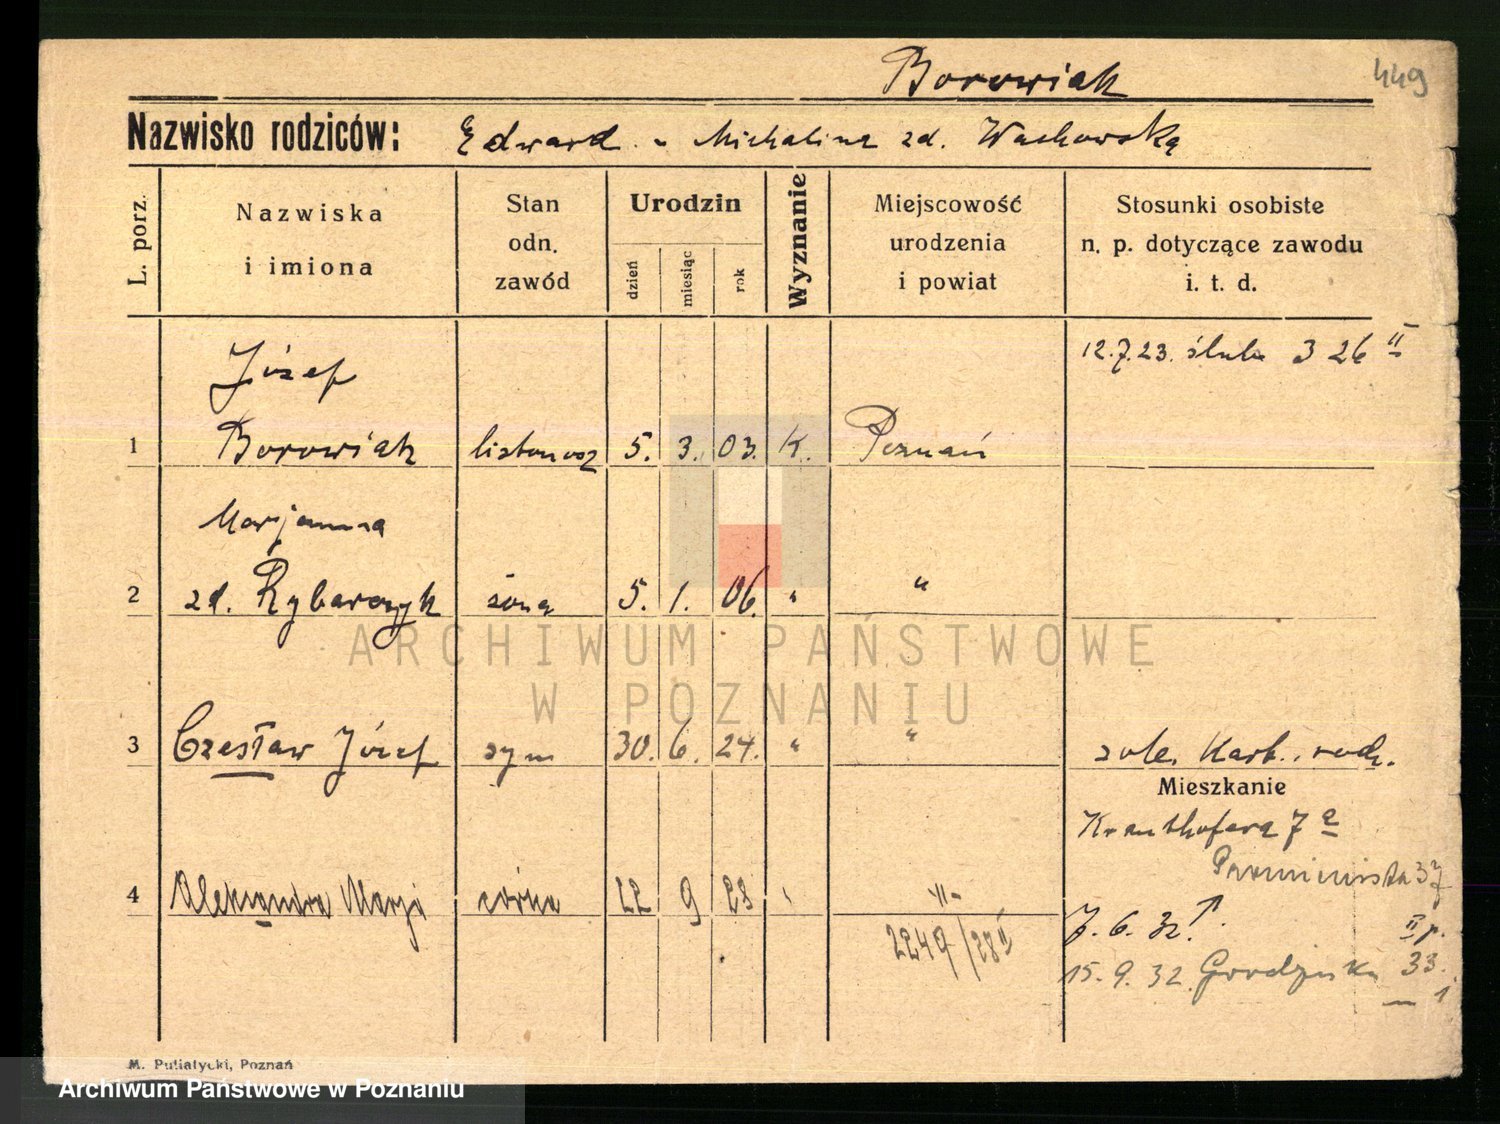 Borowiak
449
Nazwisko rodziców: Edward Michalina zd. Wachowska
L. porz.
Nazwiska
i imiona
Stan
odn.
zawód
Urodzin
dzień
miesiąc
rok
Wyznanie
Miejscowość
urodzenia
i powiat
Stosunki osobiste
n. p. dotyczące zawodu
i. t. d.
12.7.23. ślub 3 26 II
Józef
1 Borowiak listonosz 5. 3. 03. K. Poznań
Marjanna
2 zd. Rybarczyk żona 5. 1. 06. " "
ARCHIWUM PAŃSTWOWE
W POZNANIU
3 Czesław Józef syn 30. 6. 24. " "
Mieszkanie
Krauthofera 7 a
37
4 Aleksandra Marja córka 22 9 28 " -"-
2249/28 II
7. 6. 32. II p.
15. 9. 32. 33.
1
M. Putiatycki, Poznań
Archiwum Państwowe w Poznaniu